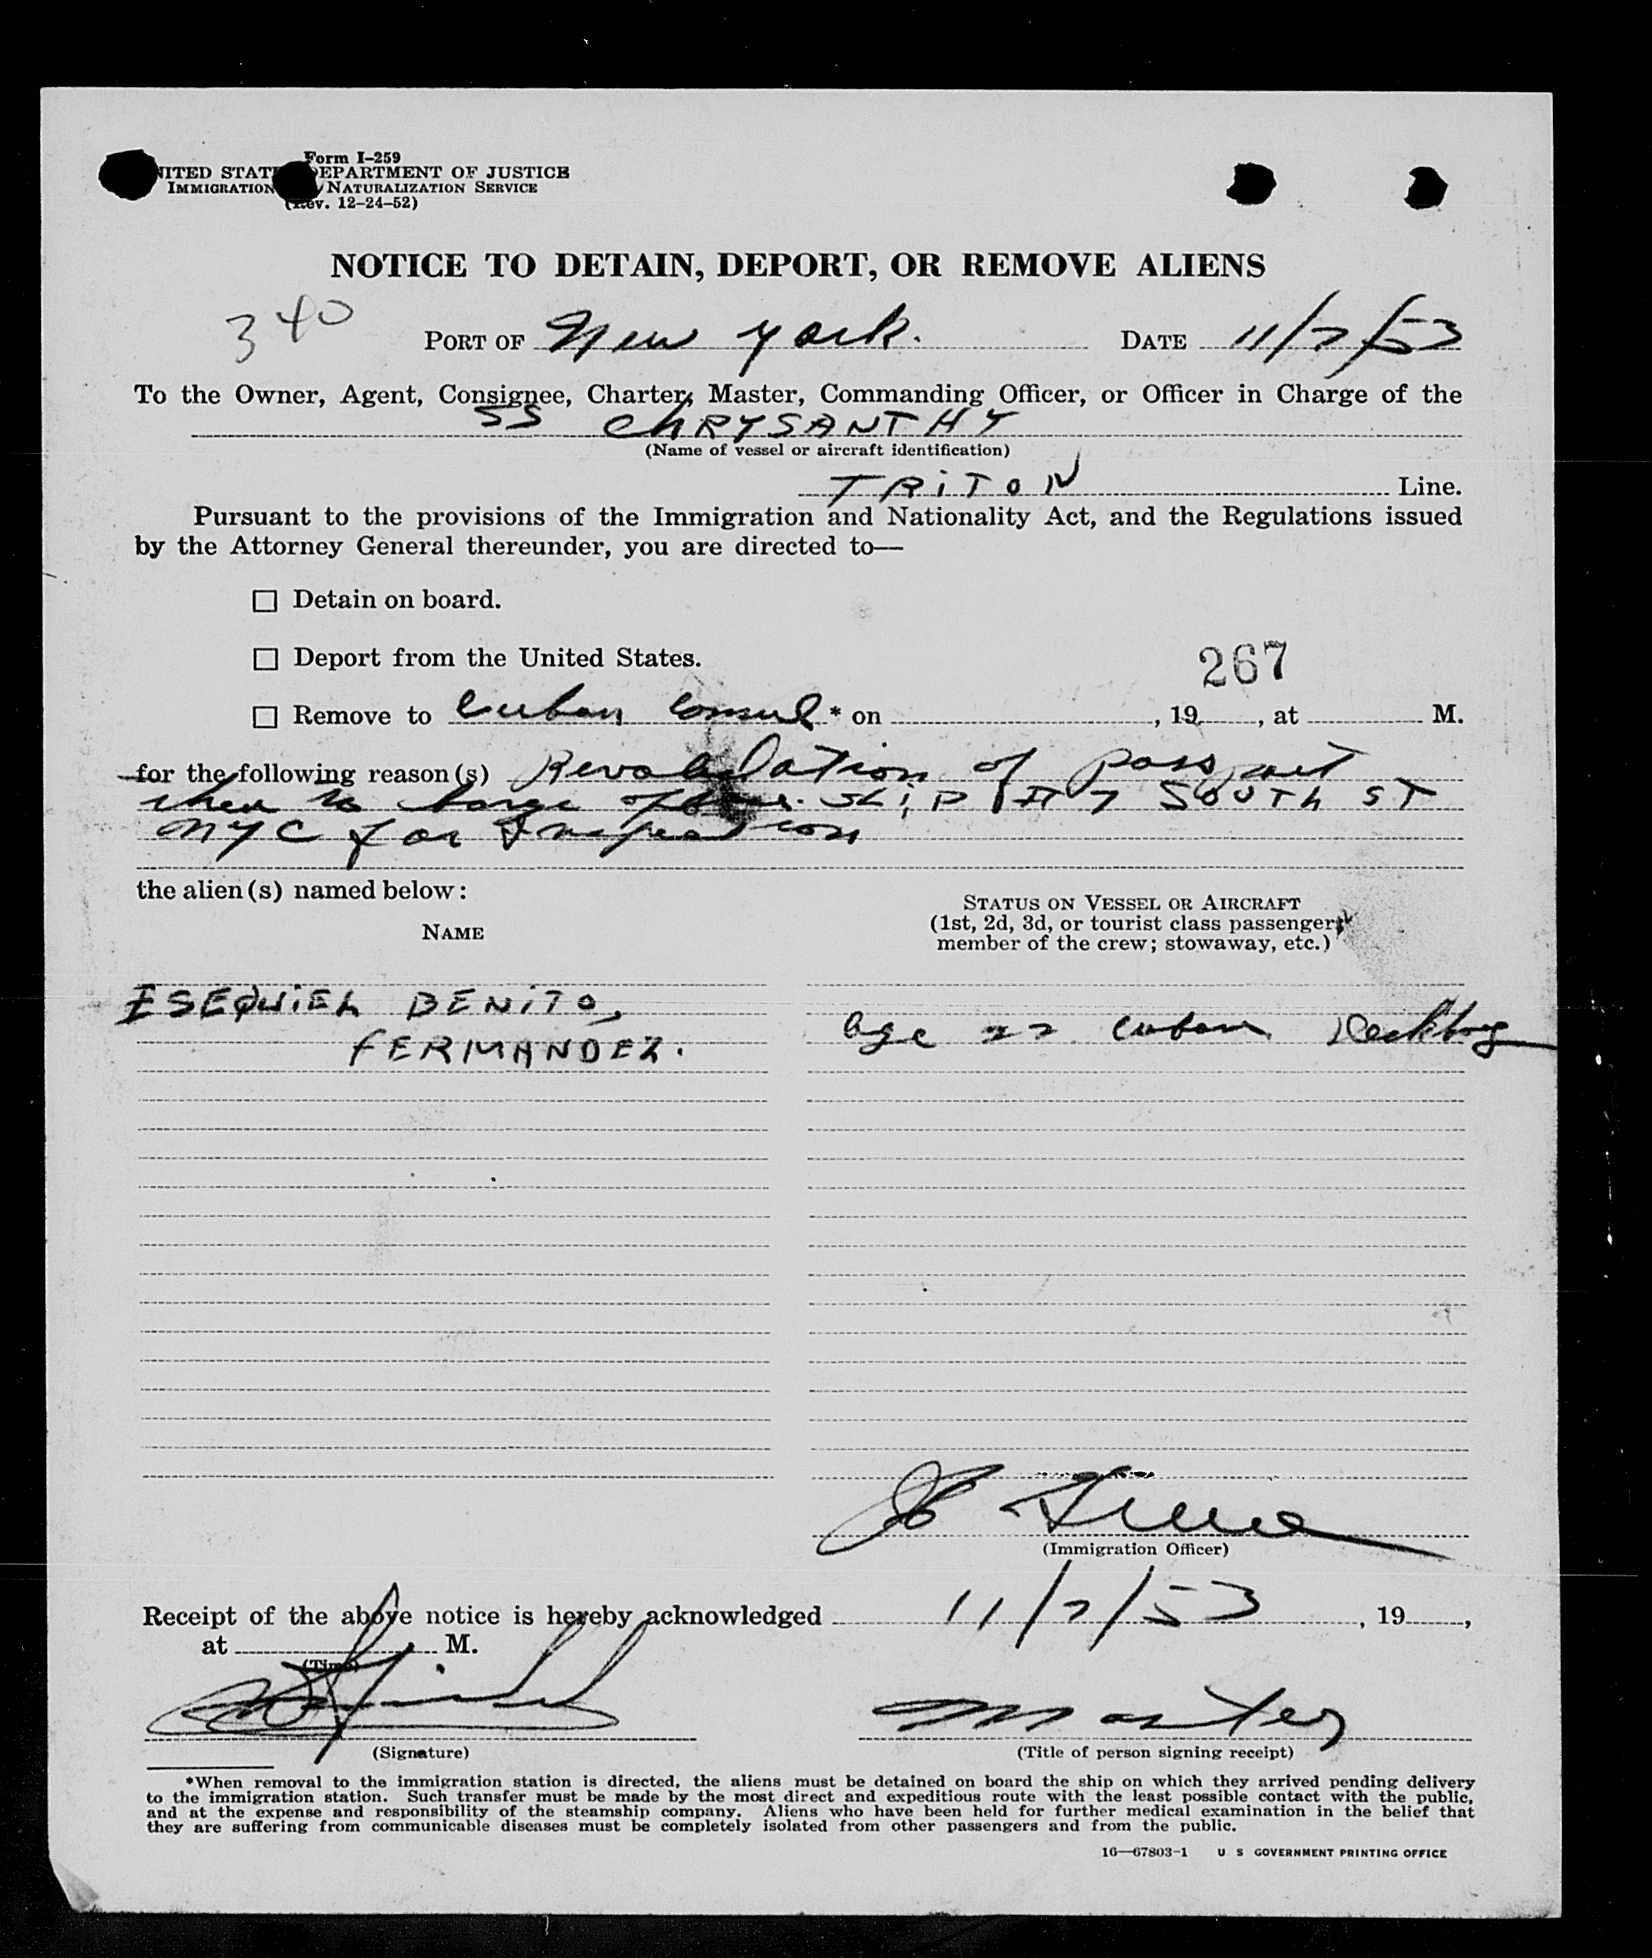 Form I-259
UNITED STATES DEPARTMENT OF JUSTICE
IMMIGRATION NATURALIZATION SERVICE
(Rev. 12-24-52)
NOTICE TO DETAIN, DEPORT, OR REMOVE ALIENS
340
PORT OF New York. DATE 11/7/53
To the Owner, Agent, Consignee, Charter, Master, Commanding Officer, or Officer in Charge of the
SS CHRYSANTHY
(Name of vessel or aircraft identification)
TRITON Line.
Pursuant to the provisions of the Immigration and Nationality Act, and the Regulations issued
by the Attorney General thereunder, you are directed to—
☐ Detain on board.
☐ Deport from the United States.
267
☐ Remove to Cuban Consul * on , 19 , at M.
for the following reason(s) Revalidation of passport
then to barge office. SLIP # 7 SOUTH ST
NYC for Inspection
the alien(s) named below:
NAME
STATUS ON VESSEL OR AIRCRAFT
(1st, 2d, 3d, or tourist class passenger;
member of the crew; stowaway, etc.)
ESEQUIEL BENITO,
FERMANDEZ.
age 22 Cuban Deckboy
(Immigration Officer)
Receipt of the above notice is hereby acknowledged 11/7/53 , 19 ,
at M.
(Time)
Master
(Signature)
(Title of person signing receipt)
*When removal to the immigration station is directed, the aliens must be detained on board the ship on which they arrived pending delivery
to the immigration station. Such transfer must be made by the most direct and expeditious route with the least possible contact with the public,
and at the expense and responsibility of the steamship company. Aliens who have been held for further medical examination in the belief that
they are suffering from communicable diseases must be completely isolated from other passengers and from the public.
16—67803-1 U S GOVERNMENT PRINTING OFFICE